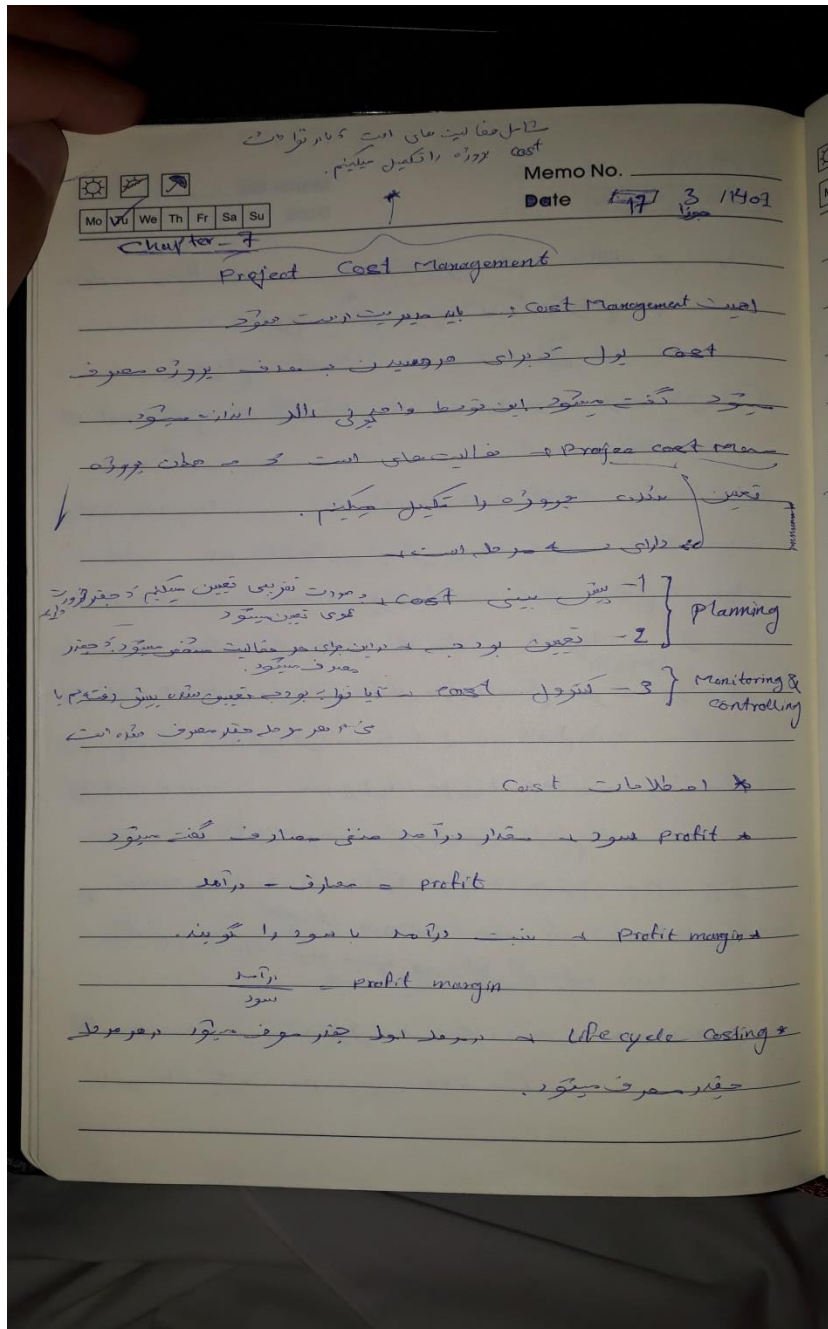 شامل فعالیت های است که بودجه
cost پروژه را تکمیل میکنیم.
Memo No.
Date 17 3 /1403
جوزا
Mo Tu We Th Fr Sa Su
Chapter - 7
Project Cost Management
اهمیت Cost Management : باید مدیریت درست شود
Cost پول که برای هدف پروژه مصرف
میشود گفته میشود این توسط واحد پولی دالر اندازه میشود.
Project cost Man فعالیت های است که به همان پروژه
تعین شده پروژه را تکمیل میکنیم.
دارای سه مرحله است
1- پیش بینی Cost بصورت تقریبی تعیین میکنیم که چقدر ضرورت
2- تعیین بودجه در این برای هر فعالیت مشخص میشود که چقدر
مصرف میشود.
Planning
3- کنترول cost آیا نظر به بودجه تعیین شده پیش رفته ایم یا
نی در هر مرحله چقدر مصرف شده است
Monitoring & Controlling
* اصطلاحات Cost
* profit سود مقدار درآمد منفی مصارف گفته میشود
profit = مصارف - درآمد
* Profit margin نسبت درآمد با سود را گویند.
profit margin = درآمد / سود
* Life cycle Costing در مرحله اول چقدر مصرف میشود در هر مرحله
چقدر مصرف میشود.